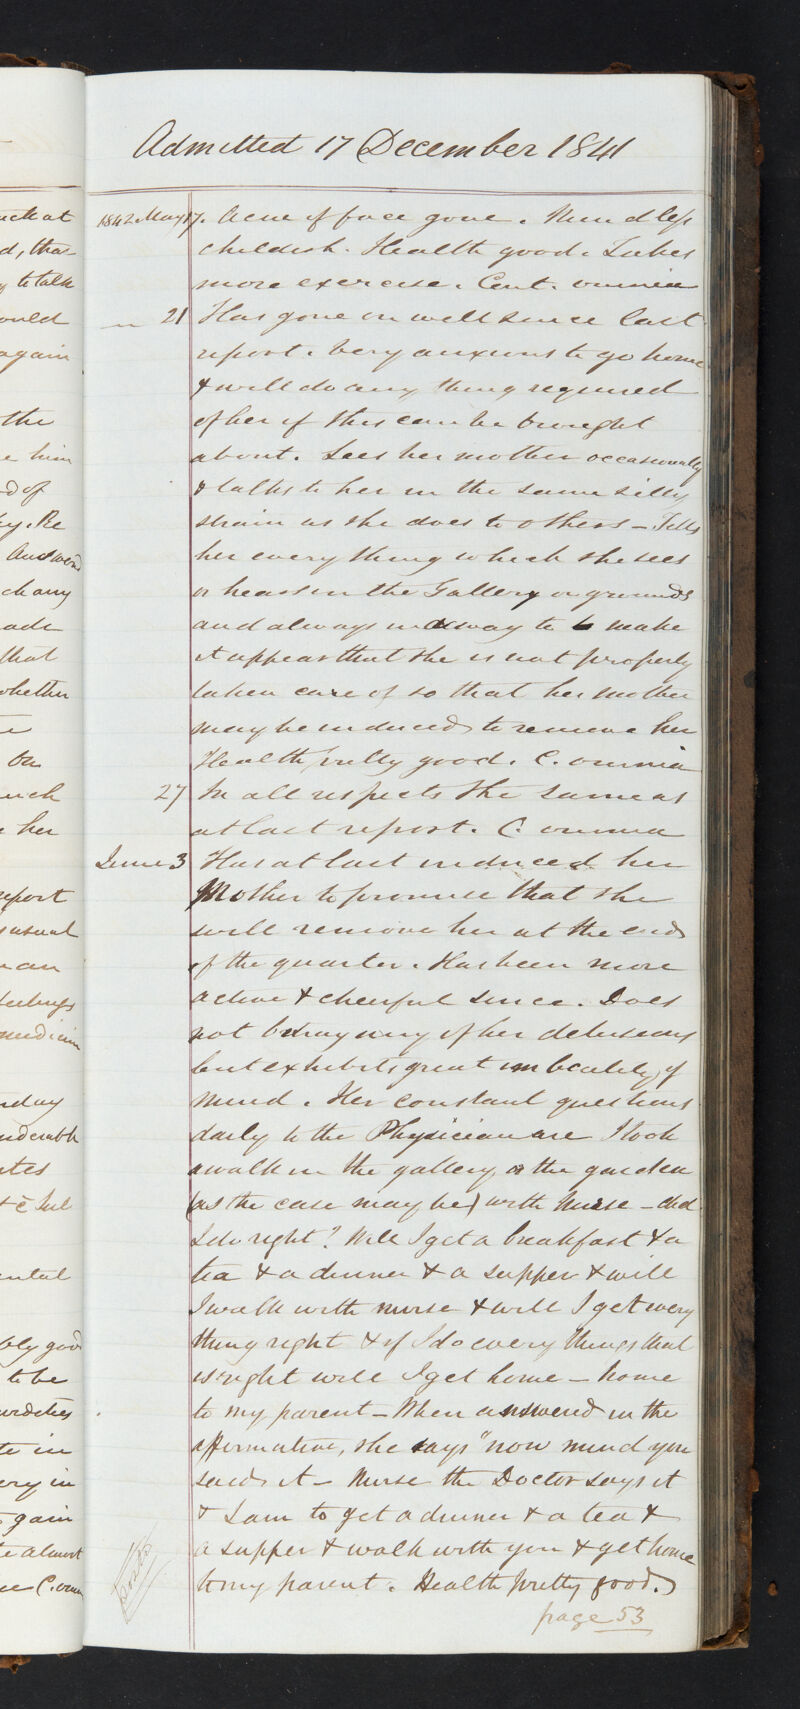 Admitted 17 December 1841
1842 May 17. Acne of face gone. Mind less
childish. Health good. Takes
more exercise. Cont. omnia
— 21 Has gone on well since last
report. Very anxious to go home
& will do any thing required
of her if this can be brought
about. Sees her mother occasionally
& talks to her in the same silly
strain as she does to others – Tells
her every thing which she sees
or hears in the Gallery or grounds
and always in a way to make
it appear that she is not properly
taken care of so that her mother
may be induced to remove her
Health pretty good. C. omnia
27 In all respects the same as
at last report. C. omnia
June 3 Has at last induced her
Mother to promise that she
will remove her at the end
of the quarter. Has been more
active & cheerful since. Does
not betray any of her delusions
but exhibits great imbecility of
mind. Her constant questions
daily to the Physician are I took
a walk in the gallery or the garden
(as the case may be) with Nurse – did
I do right? Will I get a breakfast & a
tea & a dinner & a supper & will
I walk with nurse & will I get every
thing right & if I do every things that
is right will I get home – home
to my parent – When answered in the
affirmative, she says "now mind you
said it – Nurse the Doctor says it
& I am to get a dinner & a tea &
a supper & walk with you & get home
to my parent. Health pretty good.
page 53
uch at
d, tha
to talk
ould
again
the
e him
d of
y. Re
Answers
ch any
ade
that
whether
on
uch
her
report
usual
an
feelings
medicine
day
nsiderable
ental
bly good
to be
urdities
te in
ery in
gain
te almost
C. omn